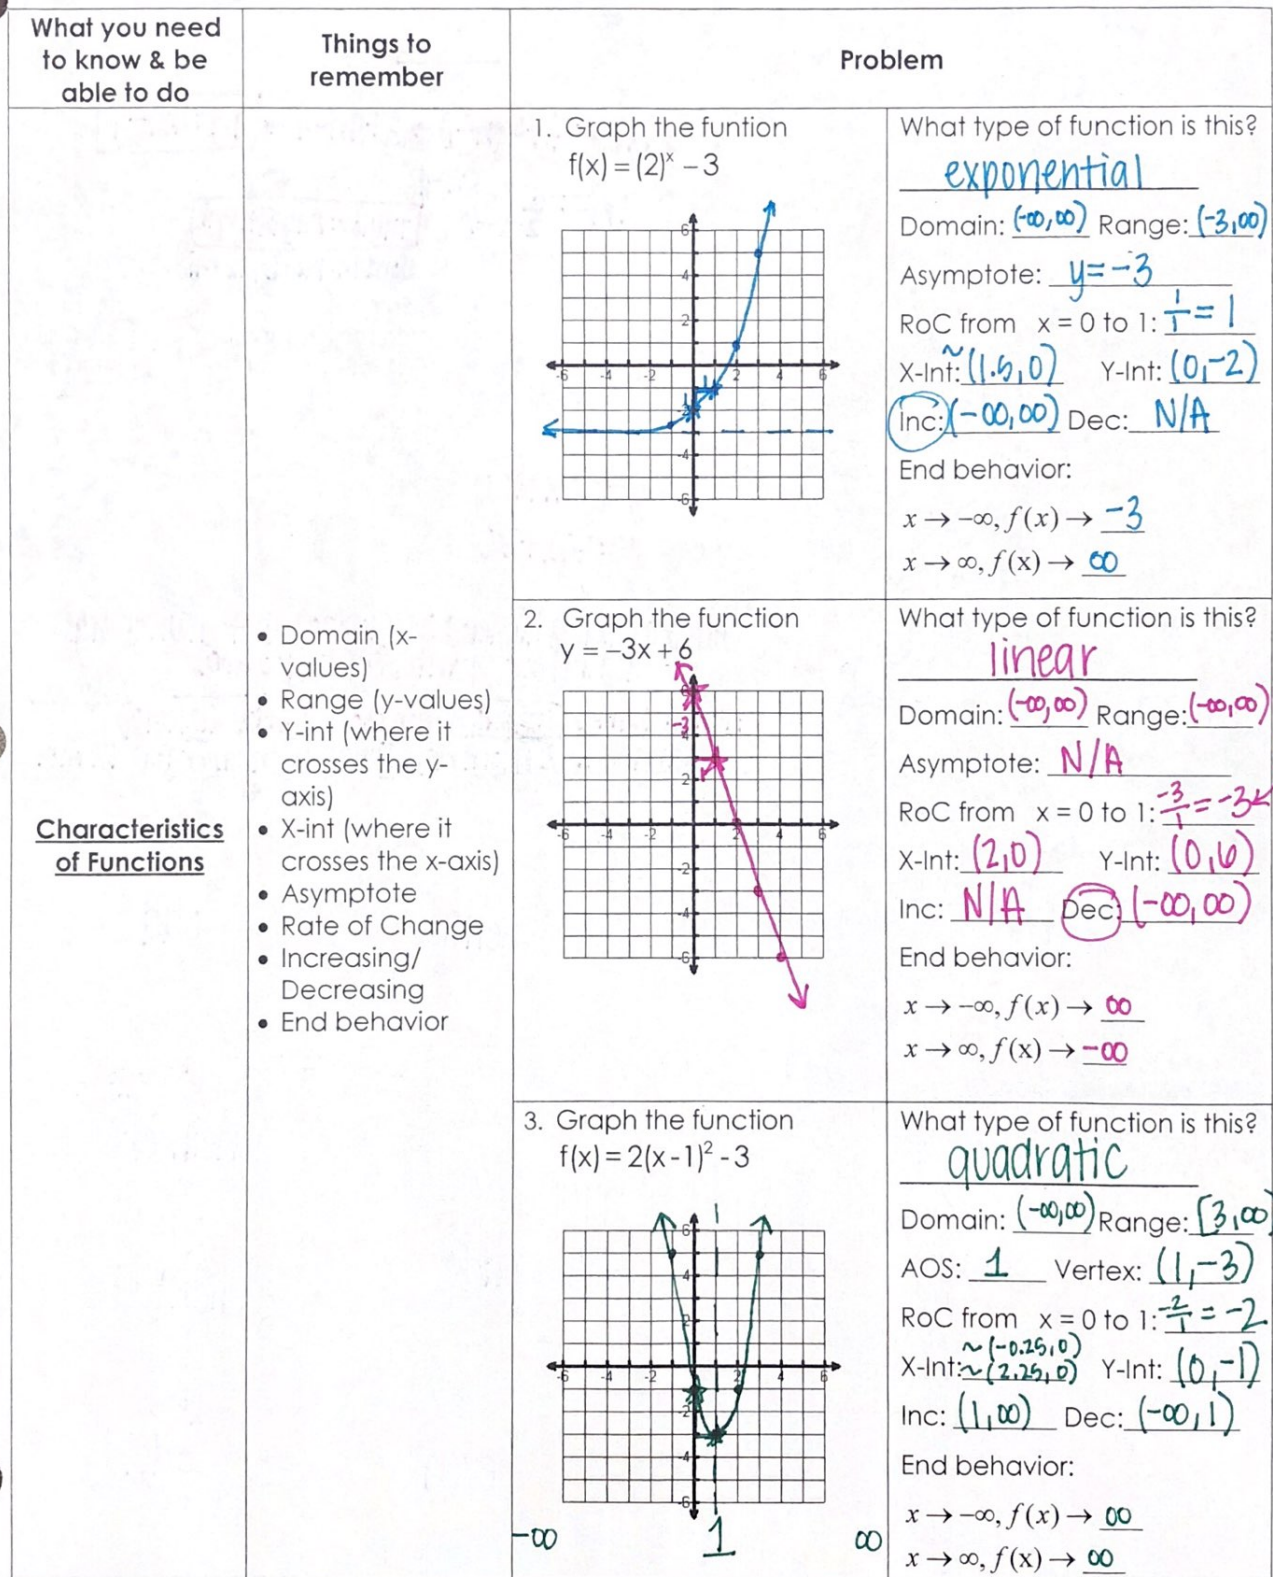 What you need
to know & be
able to do
Things to
remember
Problem
Characteristics
of Functions
• Domain (x-
values)
• Range (y-values)
• Y-int (where it
crosses the y-
axis)
• X-int (where it
crosses the x-axis)
• Asymptote
• Rate of Change
• Increasing/
Decreasing
• End behavior
1. Graph the funtion
f(x) = (2)ˣ − 3
6
4
2
-6 -4 -2 2 4 6
-2
-4
-6
1
1
What type of function is this?
exponential
Domain: (-∞,∞) Range: (-3,∞)
Asymptote: y=-3
RoC from x = 0 to 1: 1/1 = 1
X-Int: ~(1.5,0) Y-Int: (0,-2)
Inc: (-∞,∞) Dec: N/A
End behavior:
x → -∞, f(x) → -3
x → ∞, f(x) → ∞
2. Graph the function
y = −3x + 6
6
-3
4
2
-6 -4 -2 2 4 6
-2
-4
-6
What type of function is this?
linear
Domain: (-∞,∞) Range: (-∞,∞)
Asymptote: N/A
RoC from x = 0 to 1: -3/1 = -3
X-Int: (2,0) Y-Int: (0,6)
Inc: N/A Dec: (-∞,∞)
End behavior:
x → -∞, f(x) → ∞
x → ∞, f(x) → -∞
3. Graph the function
f(x) = 2(x - 1)² - 3
6
4
2
-6 -4 -2 2 4 6
-2
-4
-6
-∞ 1 ∞
What type of function is this?
quadratic
Domain: (-∞,∞) Range: [3,∞
AOS: 1 Vertex: (1,-3)
RoC from x = 0 to 1: -2/1 = -2
~(-0.25,0)
X-Int: ~(2.25,0) Y-Int: (0,-1)
Inc: (1,∞) Dec: (-∞,1)
End behavior:
x → -∞, f(x) → ∞
x → ∞, f(x) → ∞